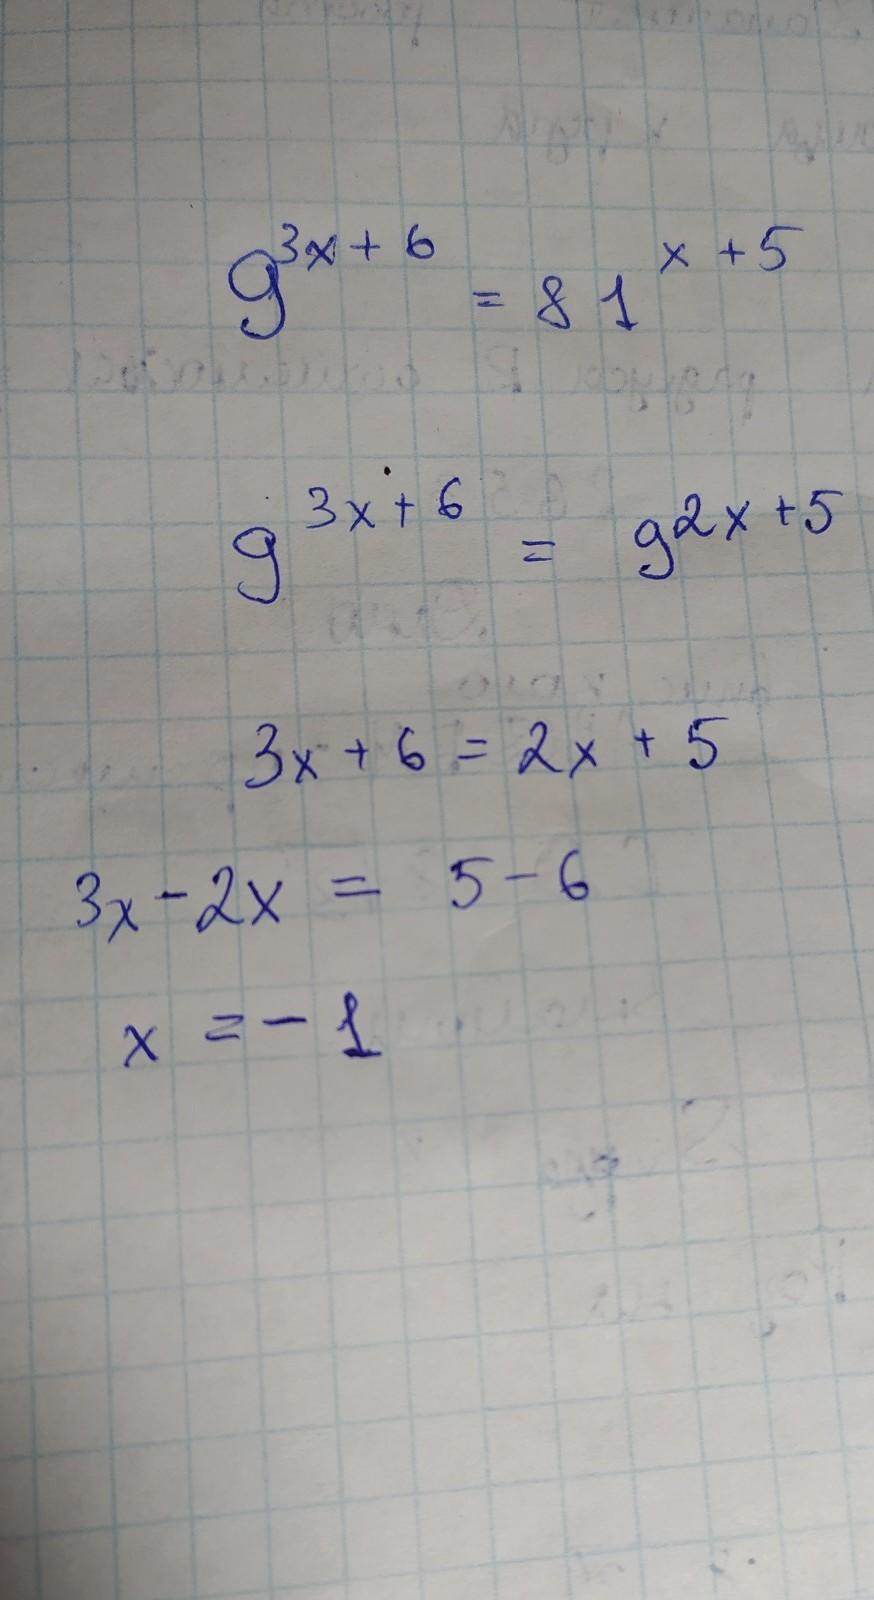 9^{3x+6} = 81^{x+5}
9^{3x+6} = 9^{2x+5}
3x + 6 = 2x + 5
3x - 2x = 5 - 6
x = - 1